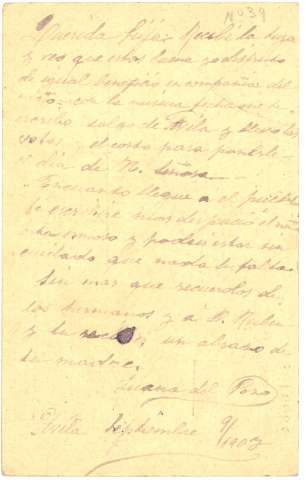 Nº 39
Querida hija: Recibí la tuya
y veo que estás buena yo disfruto
de igual beneficio en compañia del
niño. con la misma fecha que te
escribo salgo de Avila y llevo los
botos y el corto para ponerle
el dia de N. Señora
En cuanto llegue a el pueblo
te escribire mas despacio el niño
esta hermoso y podeis estar sin
cuidado que nada le falta
Sin mas que recuerdos de
los hermanos y á D.
y tu recibes un abrazo de
tu madre.
Juana del Pozo
Avila Septiembre 9/1907